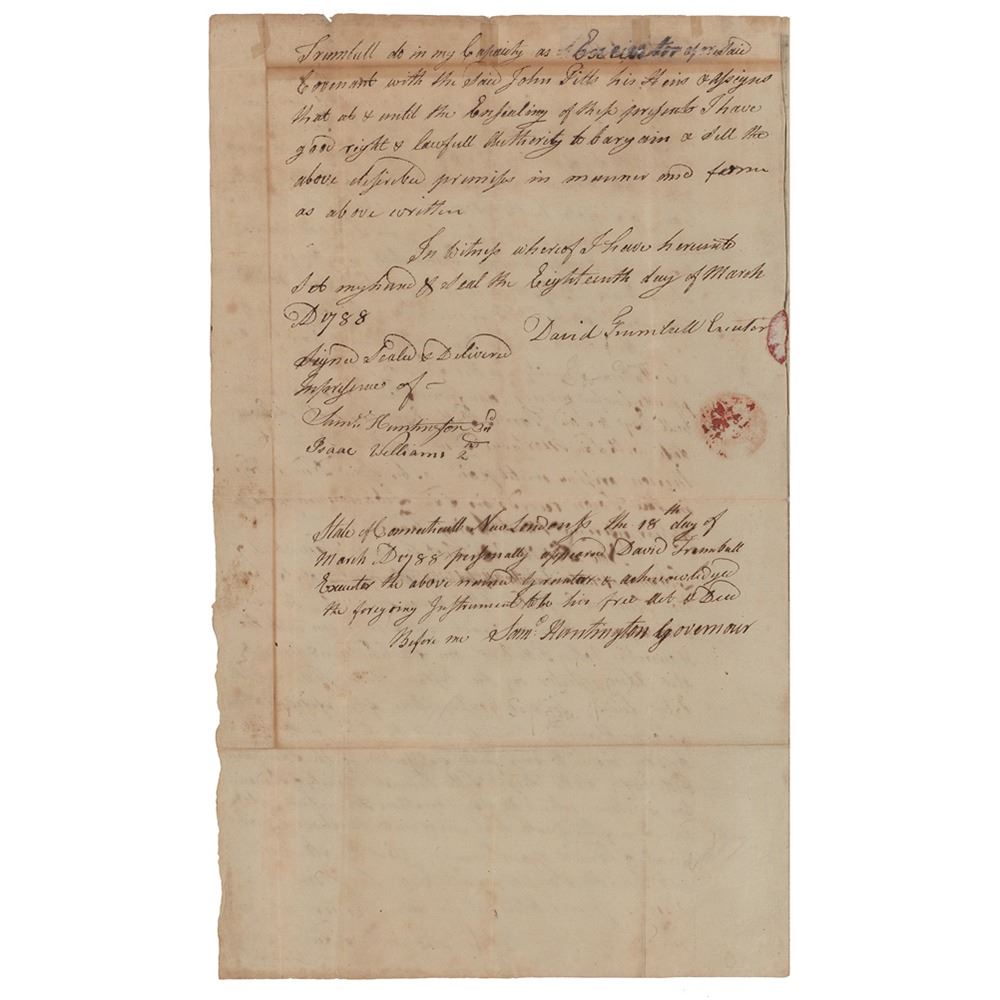 Trumbull do in my Capacity as Executor aforesaid
Covenant with the said John Pitts his Heirs & assigns
that at & until the Ensealing of these presents I have
good right & lawfull Authority to bargain & sell the
above described premises in manner and forme
as above written
In Witness whereof I have hereunto
set my hand & Seal the Eighteenth day of March
AD 1788
David Trumbull Exeutor
Signed Sealed & Delivered
In presence of
Saml. Huntington 3rd
Isaac Williams 2nd
State of Connecticutt New London ss the 18th day of
March AD 1788 personally appeared David Trumbull
Executor the above named Grantor & acknowledged
the foregoing Instrument to be his free Act & Deed
Before me Saml. Huntington Governour